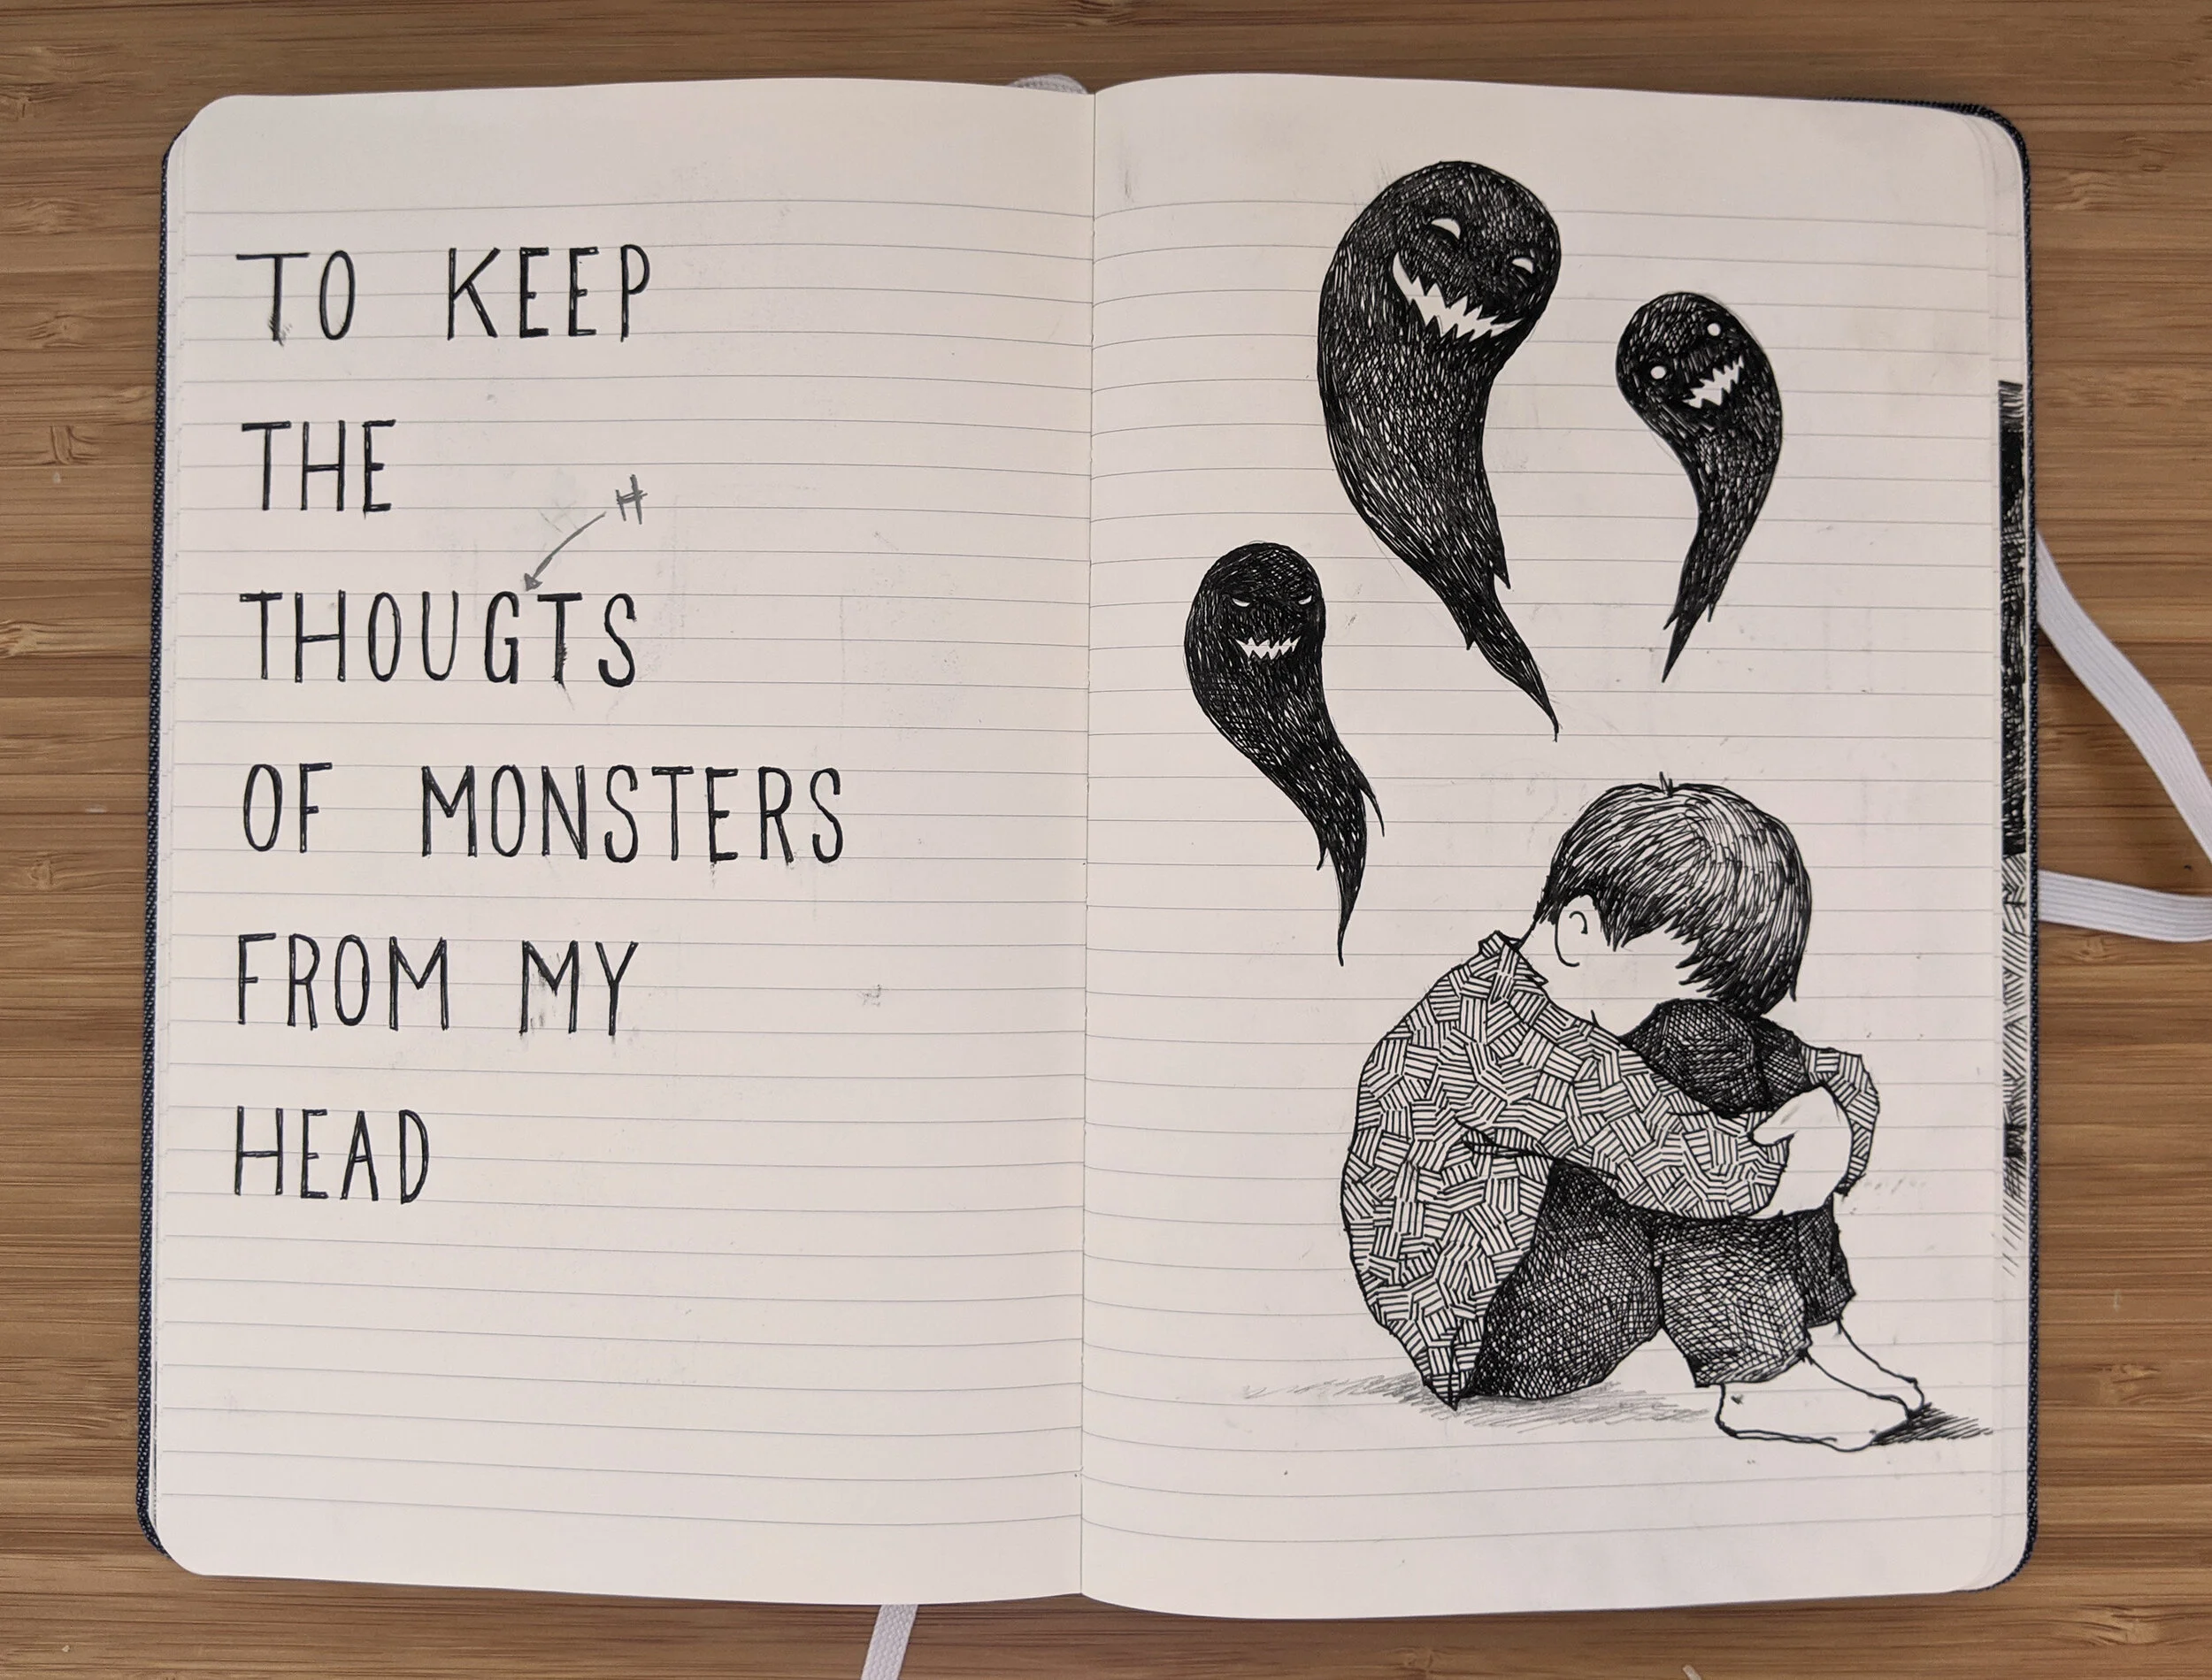 TO KEEP
THE
H
THOUGTS
OF MONSTERS
FROM MY
HEAD